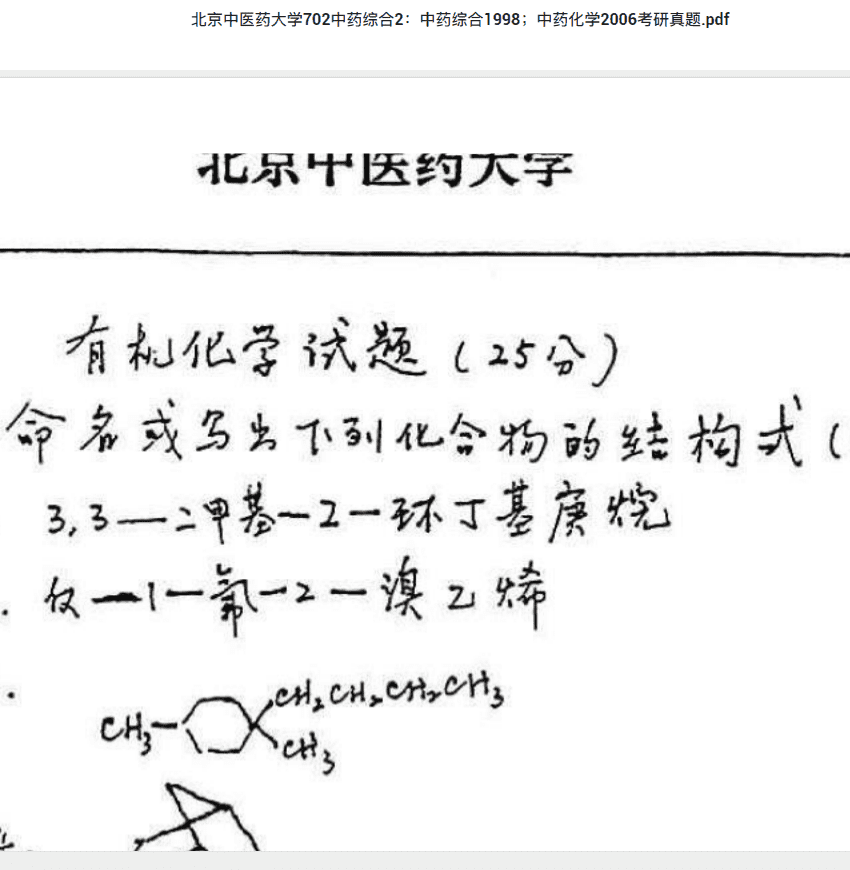 北京中医药大学702中药综合2：中药综合1998；中药化学2006考研真题.pdf
北京中医药大学
有机化学试题（25分）
命名或写出下列化合物的结构式（
3,3—二甲基—2—环丁基庚烷
. 反—1—氟—2—溴乙烯
.
CH₂CH₂CH₂CH₃
CH₃
CH₃